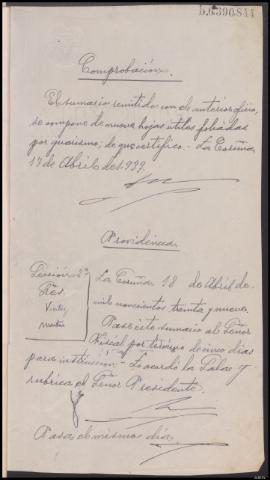 B.6.390.844
Comprobación.
El sumario remitido con el anterior oficio,
se compone de nueve hojas útiles foliadas
por guarismo; de que certifico.- La Coruña
17 de Abril de 1939.
Providencia
Sección 2ª
Ptes.
La Coruña 18 de Abril de
mil novecientos treinta y nueve.
Pase este sumario al Señor
Fiscal por término de cinco días
para instrucción.- Lo acordó la Sala y
rubrica el Señor Presidente.
Pasa el mismo día